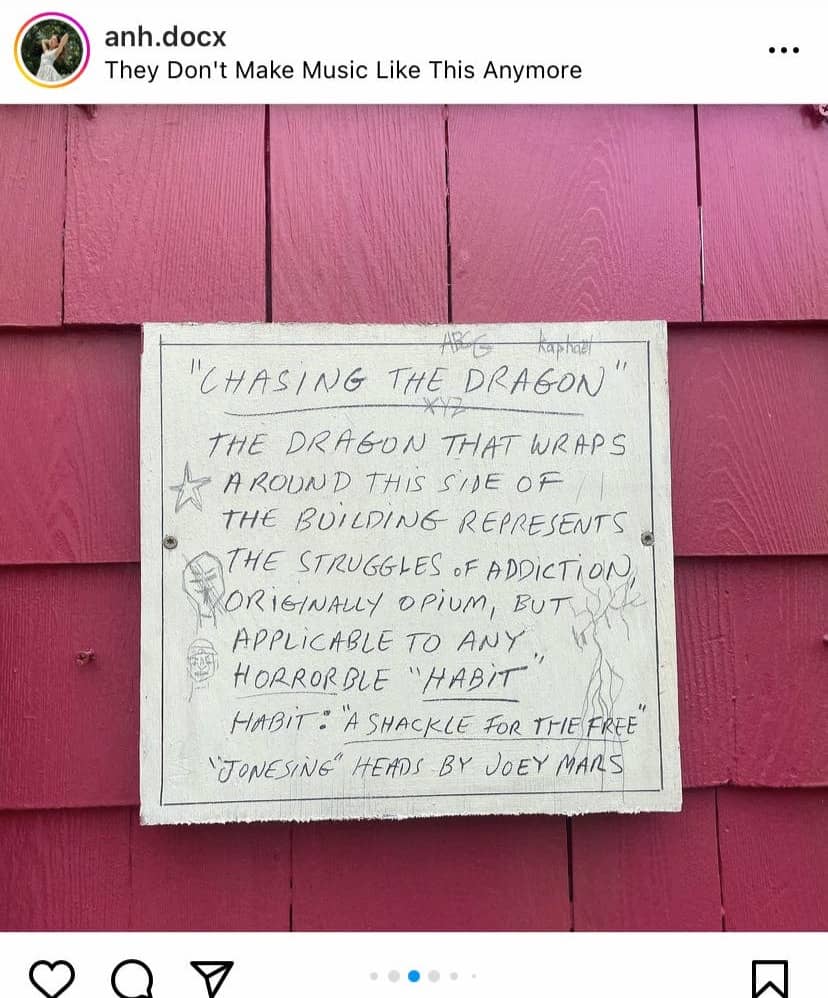 anh.docx
They Don't Make Music Like This Anymore
ABCG Raphael
"CHASING THE DRAGON"
XYZ
THE DRAGON THAT WRAPS
AROUND THIS SIDE OF
THE BUILDING REPRESENTS
THE STRUGGLES OF ADDICTION,
ORIGINALLY OPIUM, BUT
APPLICABLE TO ANY
HORRORBLE "HABIT"
HABIT: "A SHACKLE FOR THE FREE"
"JONESING" HEADS BY JOEY MARS